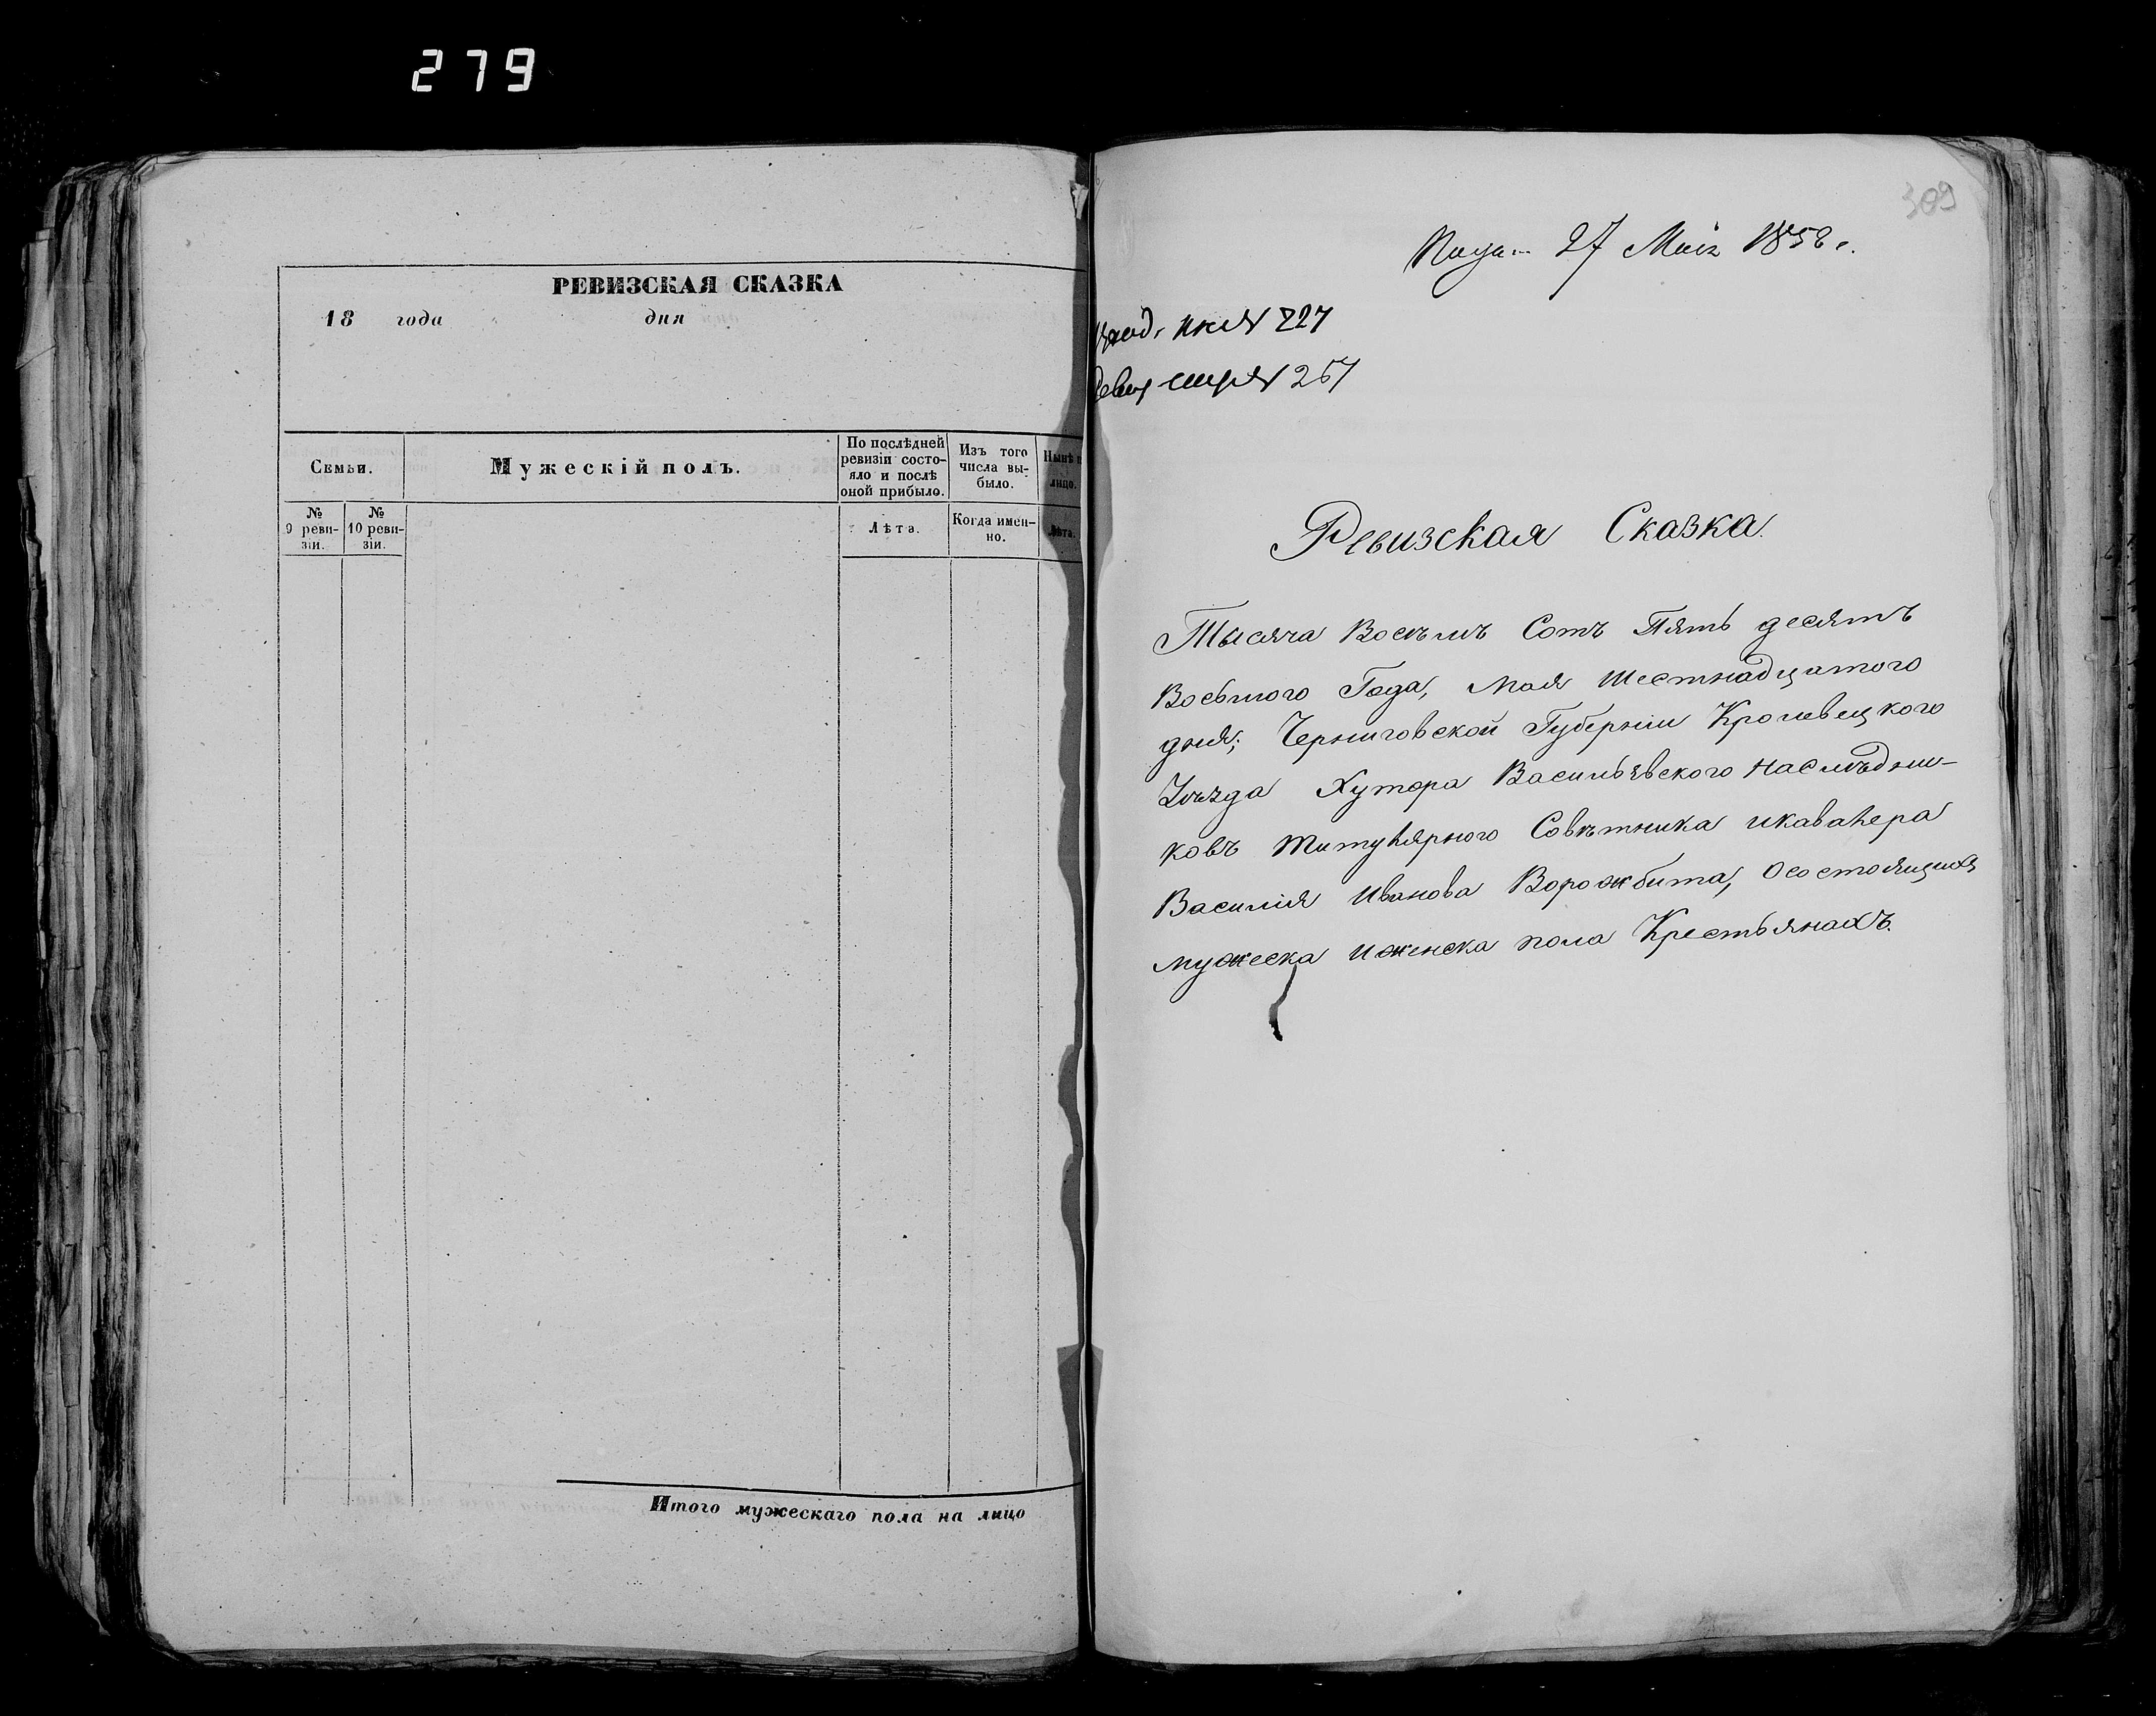 279
РЕВИЗСКАЯ СКАЗКА
18 года дня
Семьи.
Мужескій полъ.
По послѣдней ревизіи состо-
яло и послѣ
оной прибыло.
Изъ того
числа вы-
было.
Нынѣ
лицо.
№
9 реви-
зіи.
№
10 реви-
зіи.
Лѣта.
Когда имен-
но.
Лѣта.
Итого мужескаго пола на лицо
309
27 Мая 1858 г.
227
Ревизская Сказка.
Тысяча Восемъ Сотъ Пять десятъ
Восьмого Года, Мая Шестнадцатого
дня; Черниговской Губерніи Кролевецкого
Уѣзда Хутора Васильевского Наслѣдни-
ковъ Титулярного Совѣтника икавалера
Василія Иванова Ворожбита, Осостоящихъ
мужеска иженска пола Крестьянахъ.